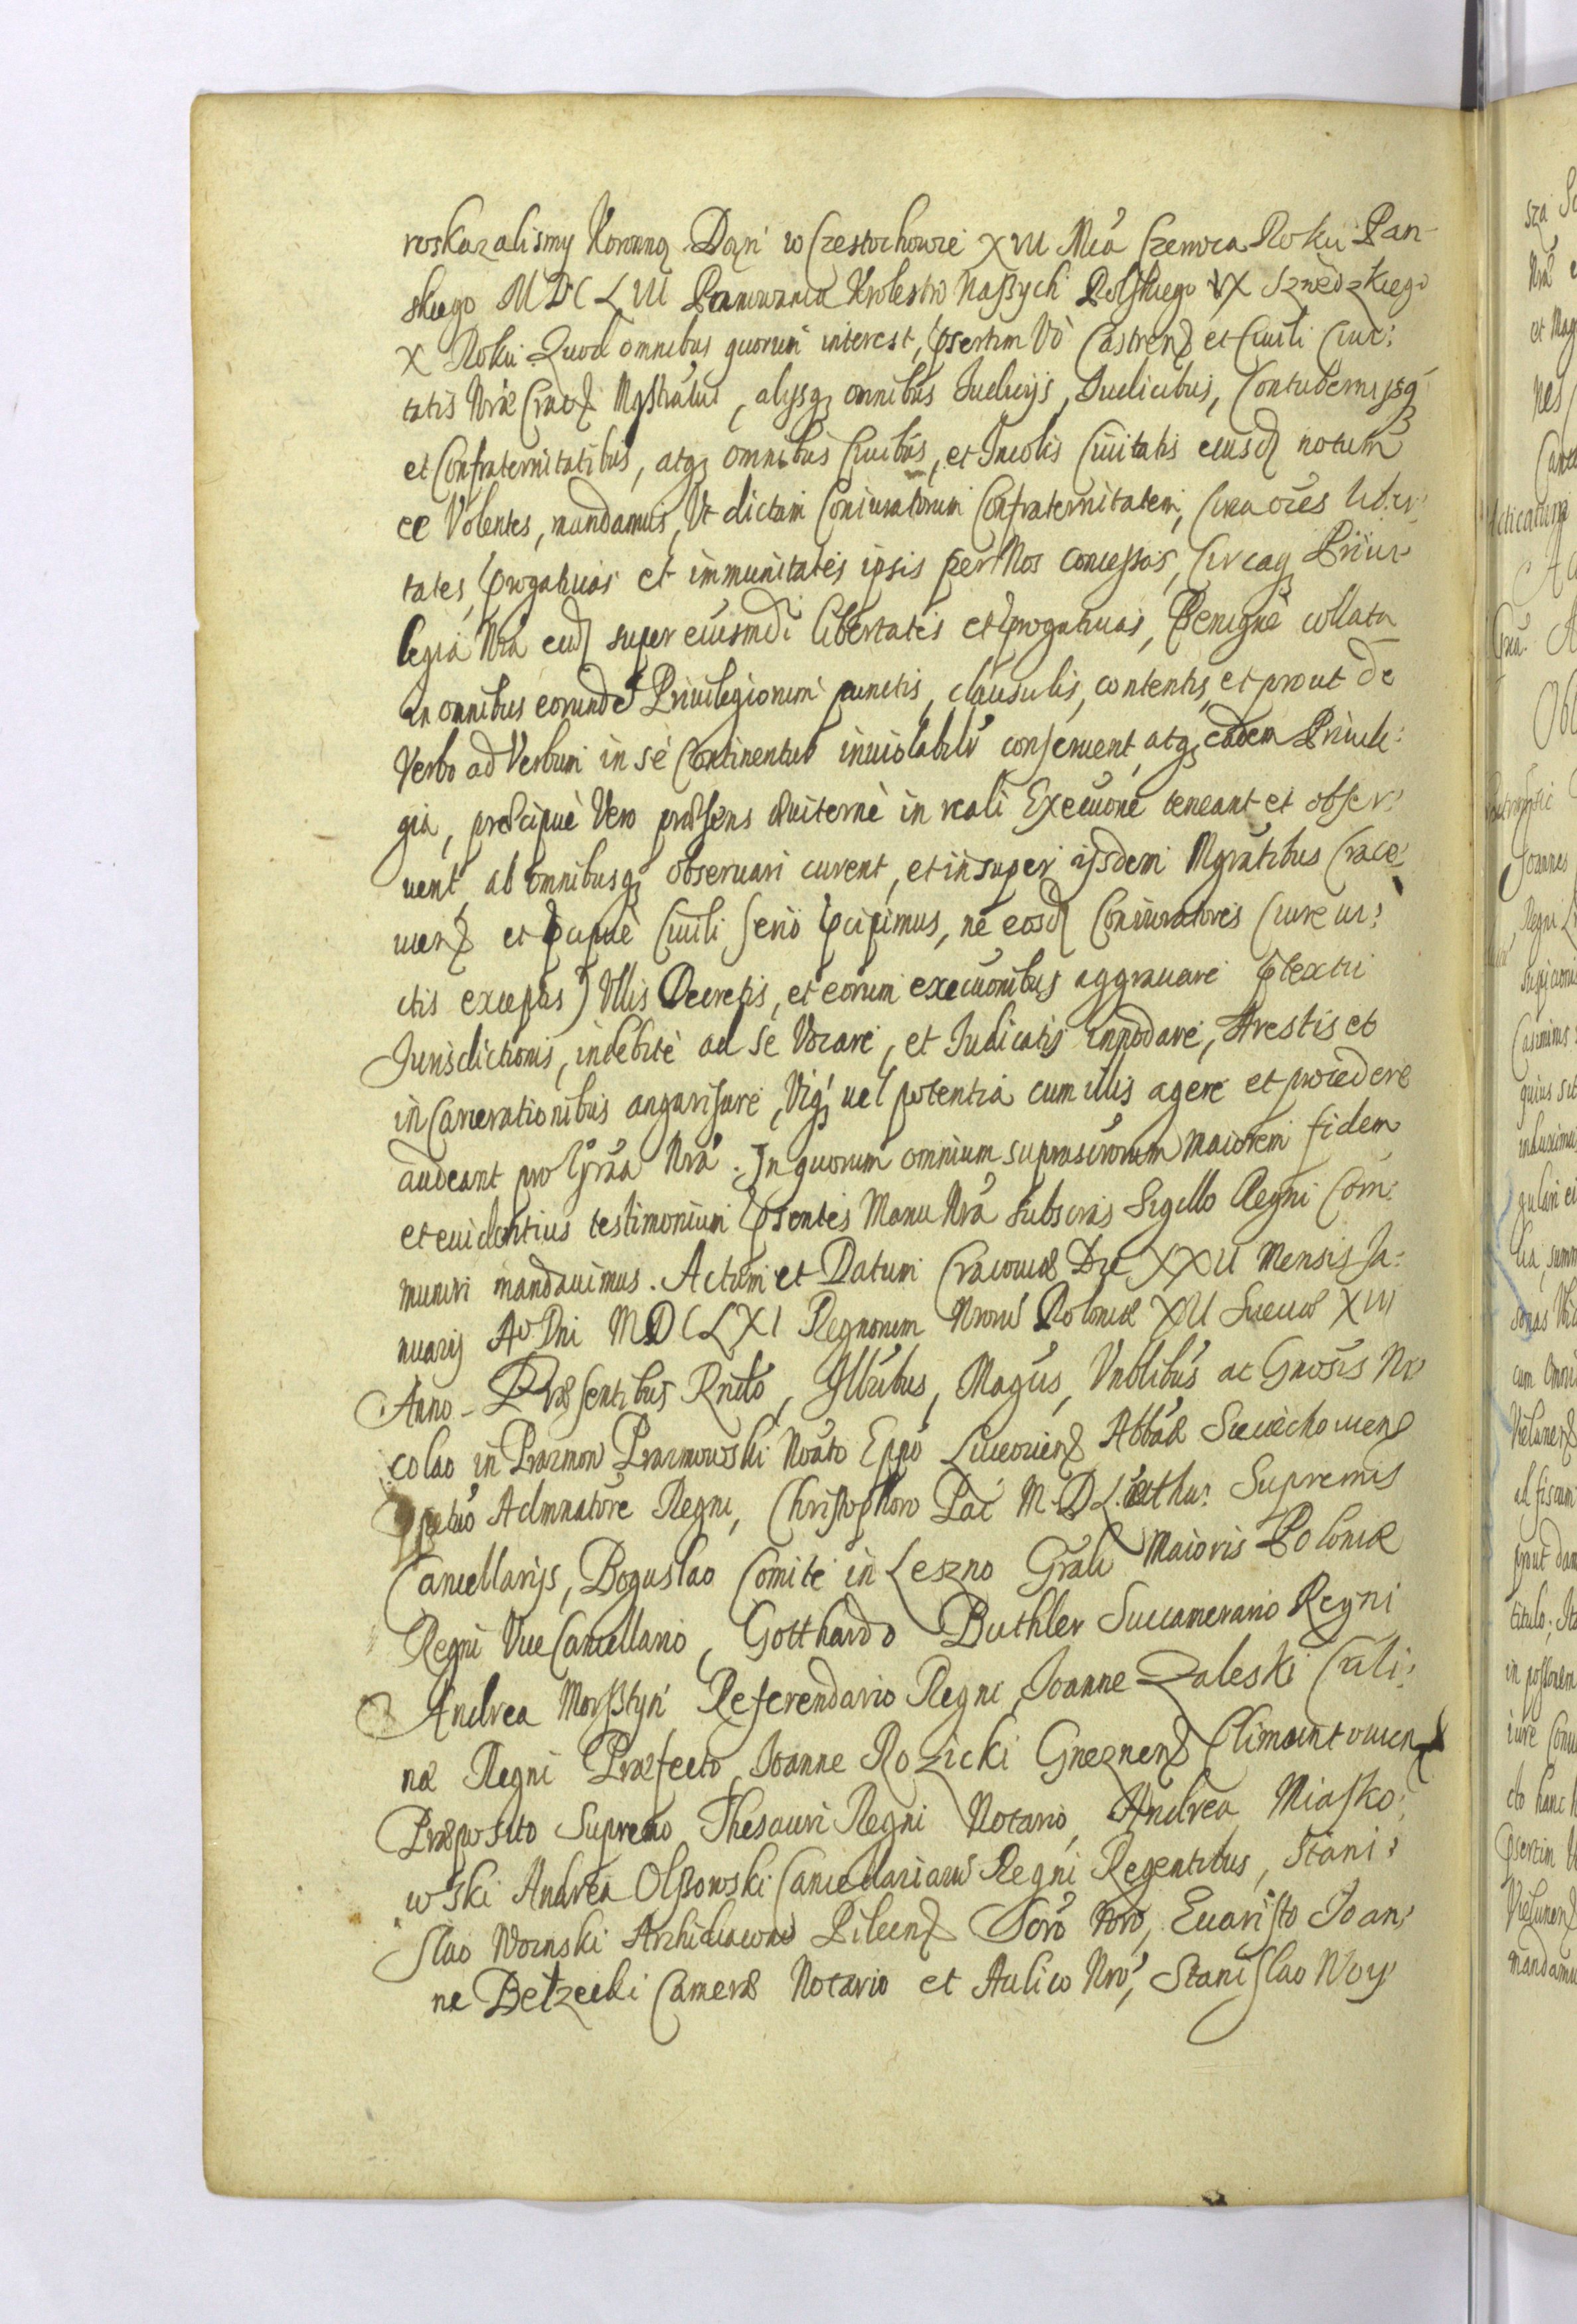 roskazalismy Koronną. Dań w Częstochowie XVII Mca Czerwca Roku Pan-
skiego MDCLVII Panowania Krolestw Naßych Polskiego IX Szwedzkiego
X Roku. Quod omnibus quorum interest, pserтim Vo Castren et Ciuili Ciui:
tatis Nræ Crac Mgstratui, alijsq omnibus Iudicijs, Iudicibus, Contubernijsq
et Confraternitatibus, atq omnibus Ciuibus, et Incolis Ciuitatis eiusd notum
ee Volentes, mandamus, Vt dictam Coniuratorum Confraternitatem, circa oes liber
tates, prrogatiuas et immunitates ipsis per Nos concessas, circaq Priui
legia Nra eisd super eiusmdi libertates et prrogatiuas, Benigne collata
in omnibus eorunde Priuilegiorum punctis, clausulis, contentis, et prout de
Verbo ad Verbum in se Continentur inuiolabilr conseruent, atq eadem Priuile:
gia, præcipue Vero præsens æuiterne in reali Execuone teneant et obser:
uent, ab omnibusq obseruari curent, et insuper ijsdem Mgratibus Craco:
uien et pcipue Ciuili serio pcipimus, ne eosd Coniuratores (iure ui:
ctis exceptis) Vllis Decretis, et eorum execuonibus aggrauare ptextu
Jurisdictionis, indebite ad se Vocare, et Iudicatis innodare, Arestis et
inCarcerationibus angarisare, Viq uel potentia cum illis agere et procedere
audeant pro Graa Nra. In quorum omnium suprascrorum maiorem fidem
et euidentius testimonium psentes Manu Nra subscras Sigillo Regni Com:
muniri mandauimus. Actum et Datum Cracouiæ Die XXII Mensis Ja:
nuarij Ao Dni MDCLXI Regnorum Nrorum Poloniæ XII Sueciæ XIII
Anno. Præsentibus Rndo, Illribus, Magcis, Vnblibus ac Gnosis Ni
colao in Prazmow Prazmowski Noato Eppo Luceorien Abbae Sieciechouien
ppetuo Admnatore Regni, Christophoro Pac M. D. Lithu: Supremis
Cancellarijs, Boguslao Comite in Leszno Grali Maioris Poloniæ
Regni ViceCancellario, Gotthardo Buthler Succamerario Regni
Andrea Morßtyn Referendario Regni, Joanne Zaleski Culi:
næ Regni Præfecto, Joanne Rozicki Gneznen Climuntouien
Præposito Supremo Thesauri Regni Notario, Andrea Miasko:
wski Andrea Olßowski Cancellariaru Regni Regentibus, Stani:
slao Woinski Archidiacono Pilecen Scro Nro, Euaristo Joan:
ne Betzecki Cameræ Notario et Aulico Nro, Stanislao Woy